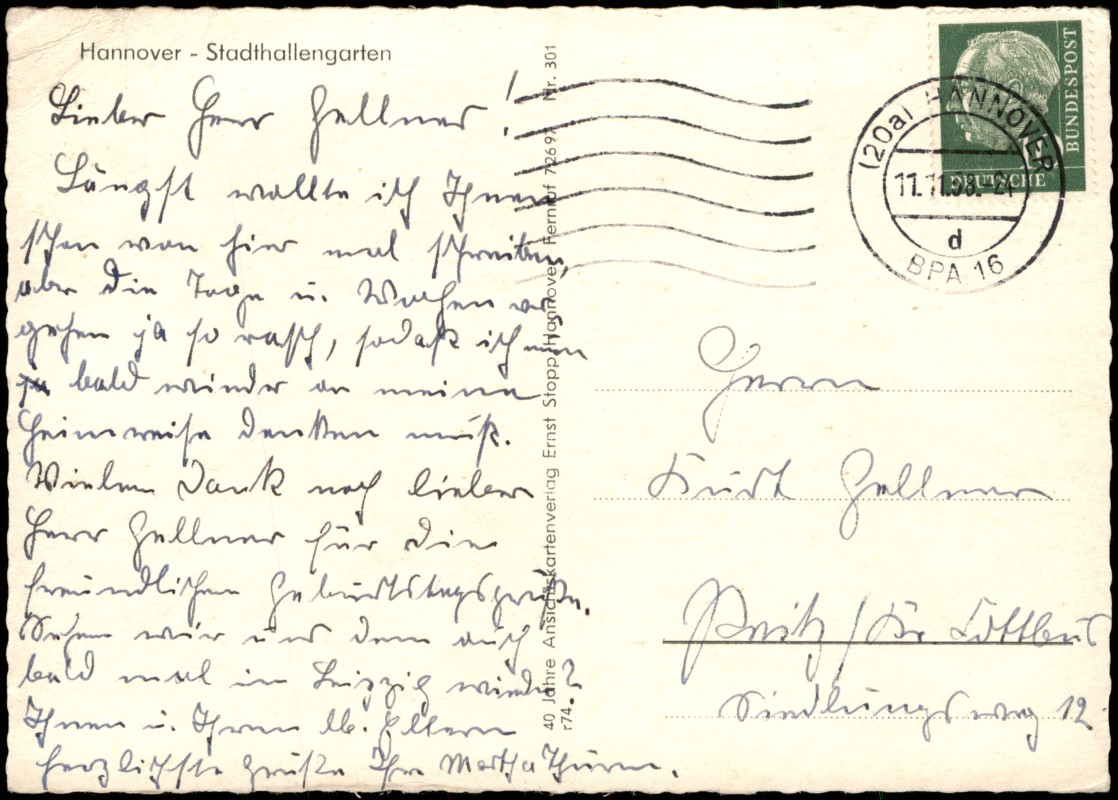 Hannover - Stadthallengarten
Lieber Herr Zellner!
Längst wollte ich Ihnen
schon von hier mal schreiben,
aber die Tage u. Wochen ver
gehen ja so rasch, sodaß ich nun
bald wieder an meine
Heimreise denken muß.
Vielen Dank noch lieber
Herr Zellner für die
freundlichen Geburtstagsgrüße.
Sehen wir uns denn auch
bald mal in Leipzig wieder?
Ihnen u. Ihren lb. Eltern
herzlichste Grüße Ihre Martha Thürm.
40 Jahre Ansichtskartenverlag Ernst Stopp, Hannover, Fernruf 72697 Nr. 301
r74.
(20a) HANNOVER
11.11.58.-21
d
BPA 16
DEUTSCHE
BUNDESPOST
Herrn
Kurt Zellner
/ Kr. Cottbus
Siedlungsweg 12